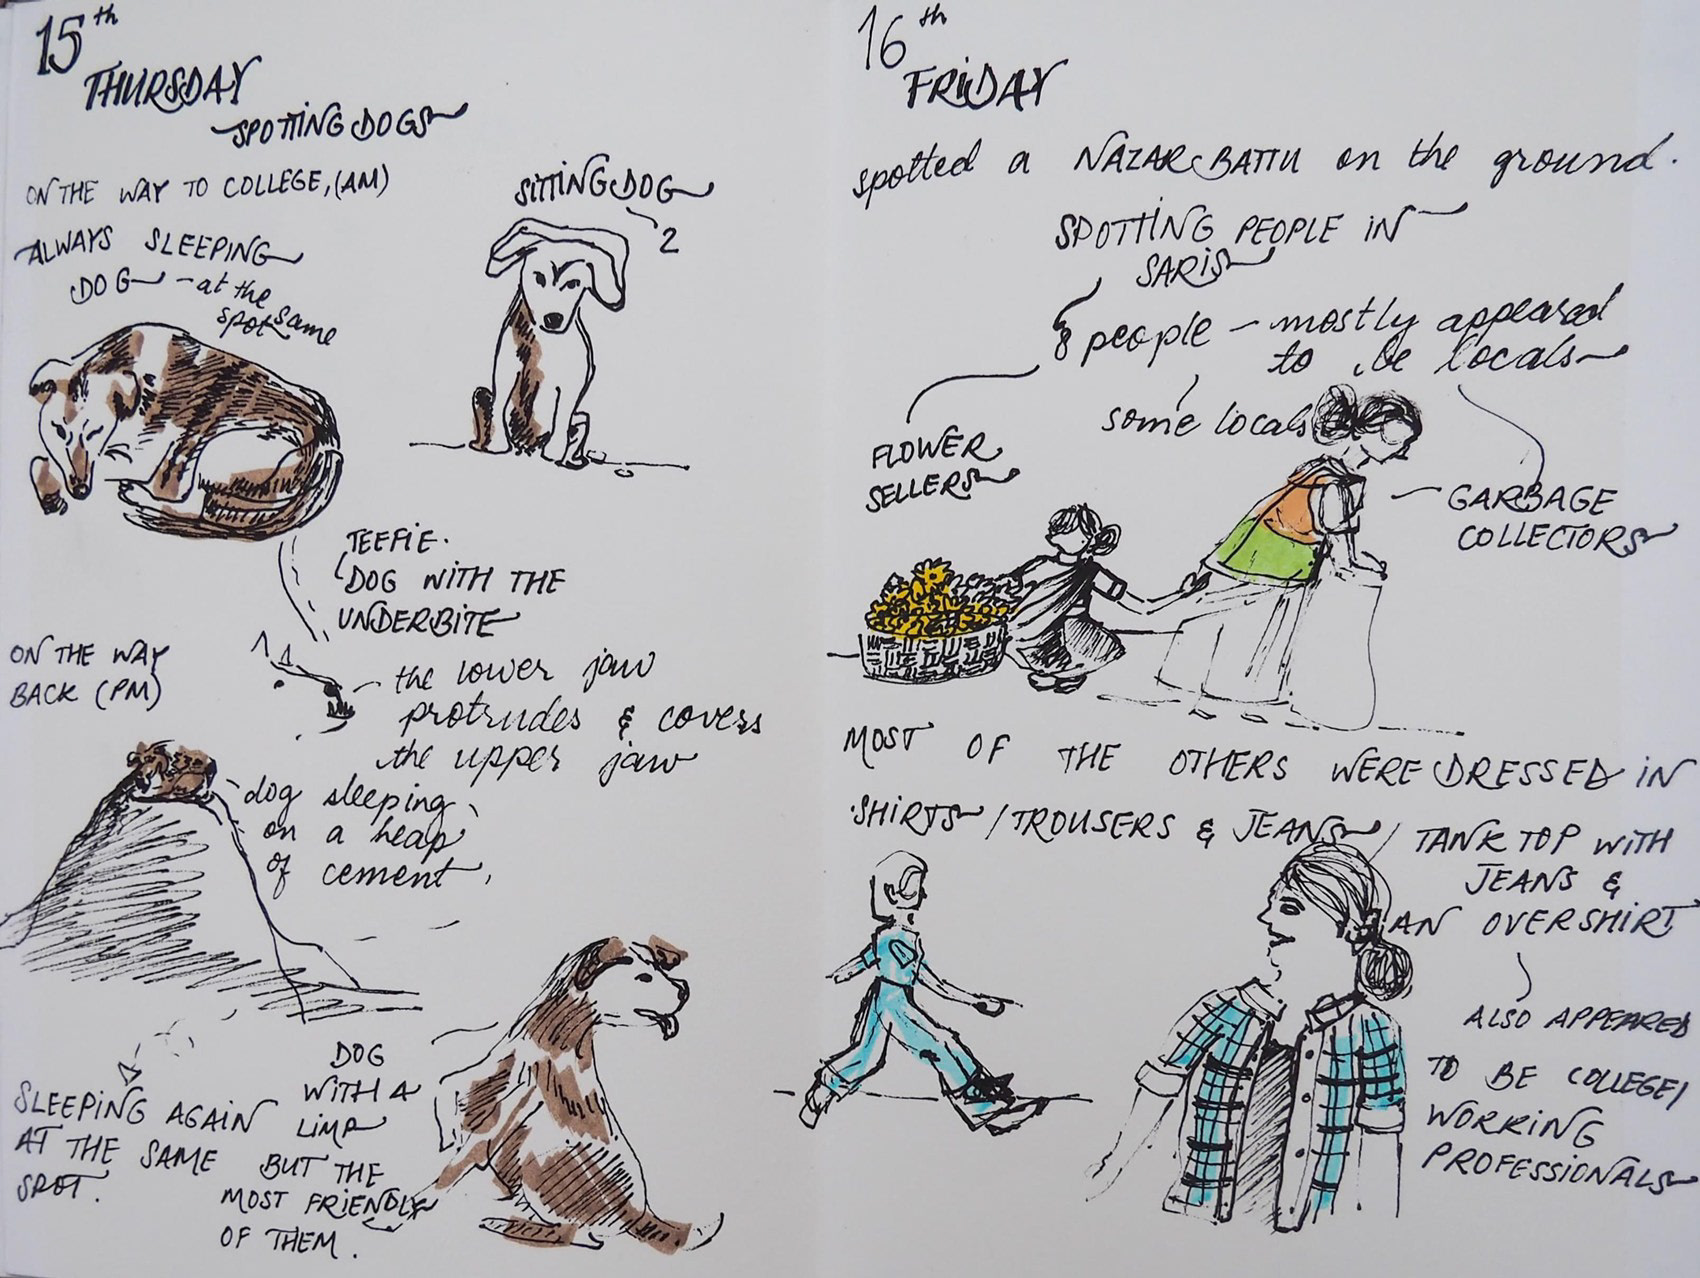 15th
THURSDAY
SPOTTING DOGS
ON THE WAY TO COLLEGE, (AM)
ALWAYS SLEEPING
DOG - at the
same
spot
SITTING DOG
2
TEEFIE.
DOG WITH THE
UNDERBITE
the lower jaw
protrudes & covers
the upper jaw
ON THE WAY
BACK (PM)
dog sleeping
on a heap
of cement,
SLEEPING AGAIN
AT THE SAME
SPOT.
DOG
WITH A
LIMP
BUT THE
MOST FRIENDLY
OF THEM.
16th
FRIDAY
spotted a NAZAR BATTU on the ground.
SPOTTING PEOPLE IN
SARIS
8 people - mostly appeared
to be locals
some locals
FLOWER
SELLERS
GARBAGE
COLLECTORS
MOST OF THE OTHERS WERE DRESSED IN
SHIRTS / TROUSERS & JEANS /
TANK TOP WITH
JEANS &
AN OVERSHIRT
ALSO APPEARED
TO BE COLLEGE/
WORKING
PROFESSIONALS